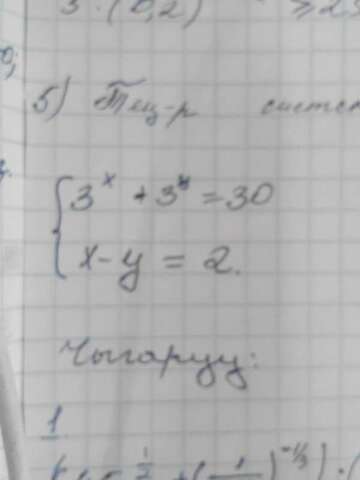 3·(0,2)
5) Тең-р систем
{3^x + 3^y = 30
x - y = 2.
Чыгаруу:
1